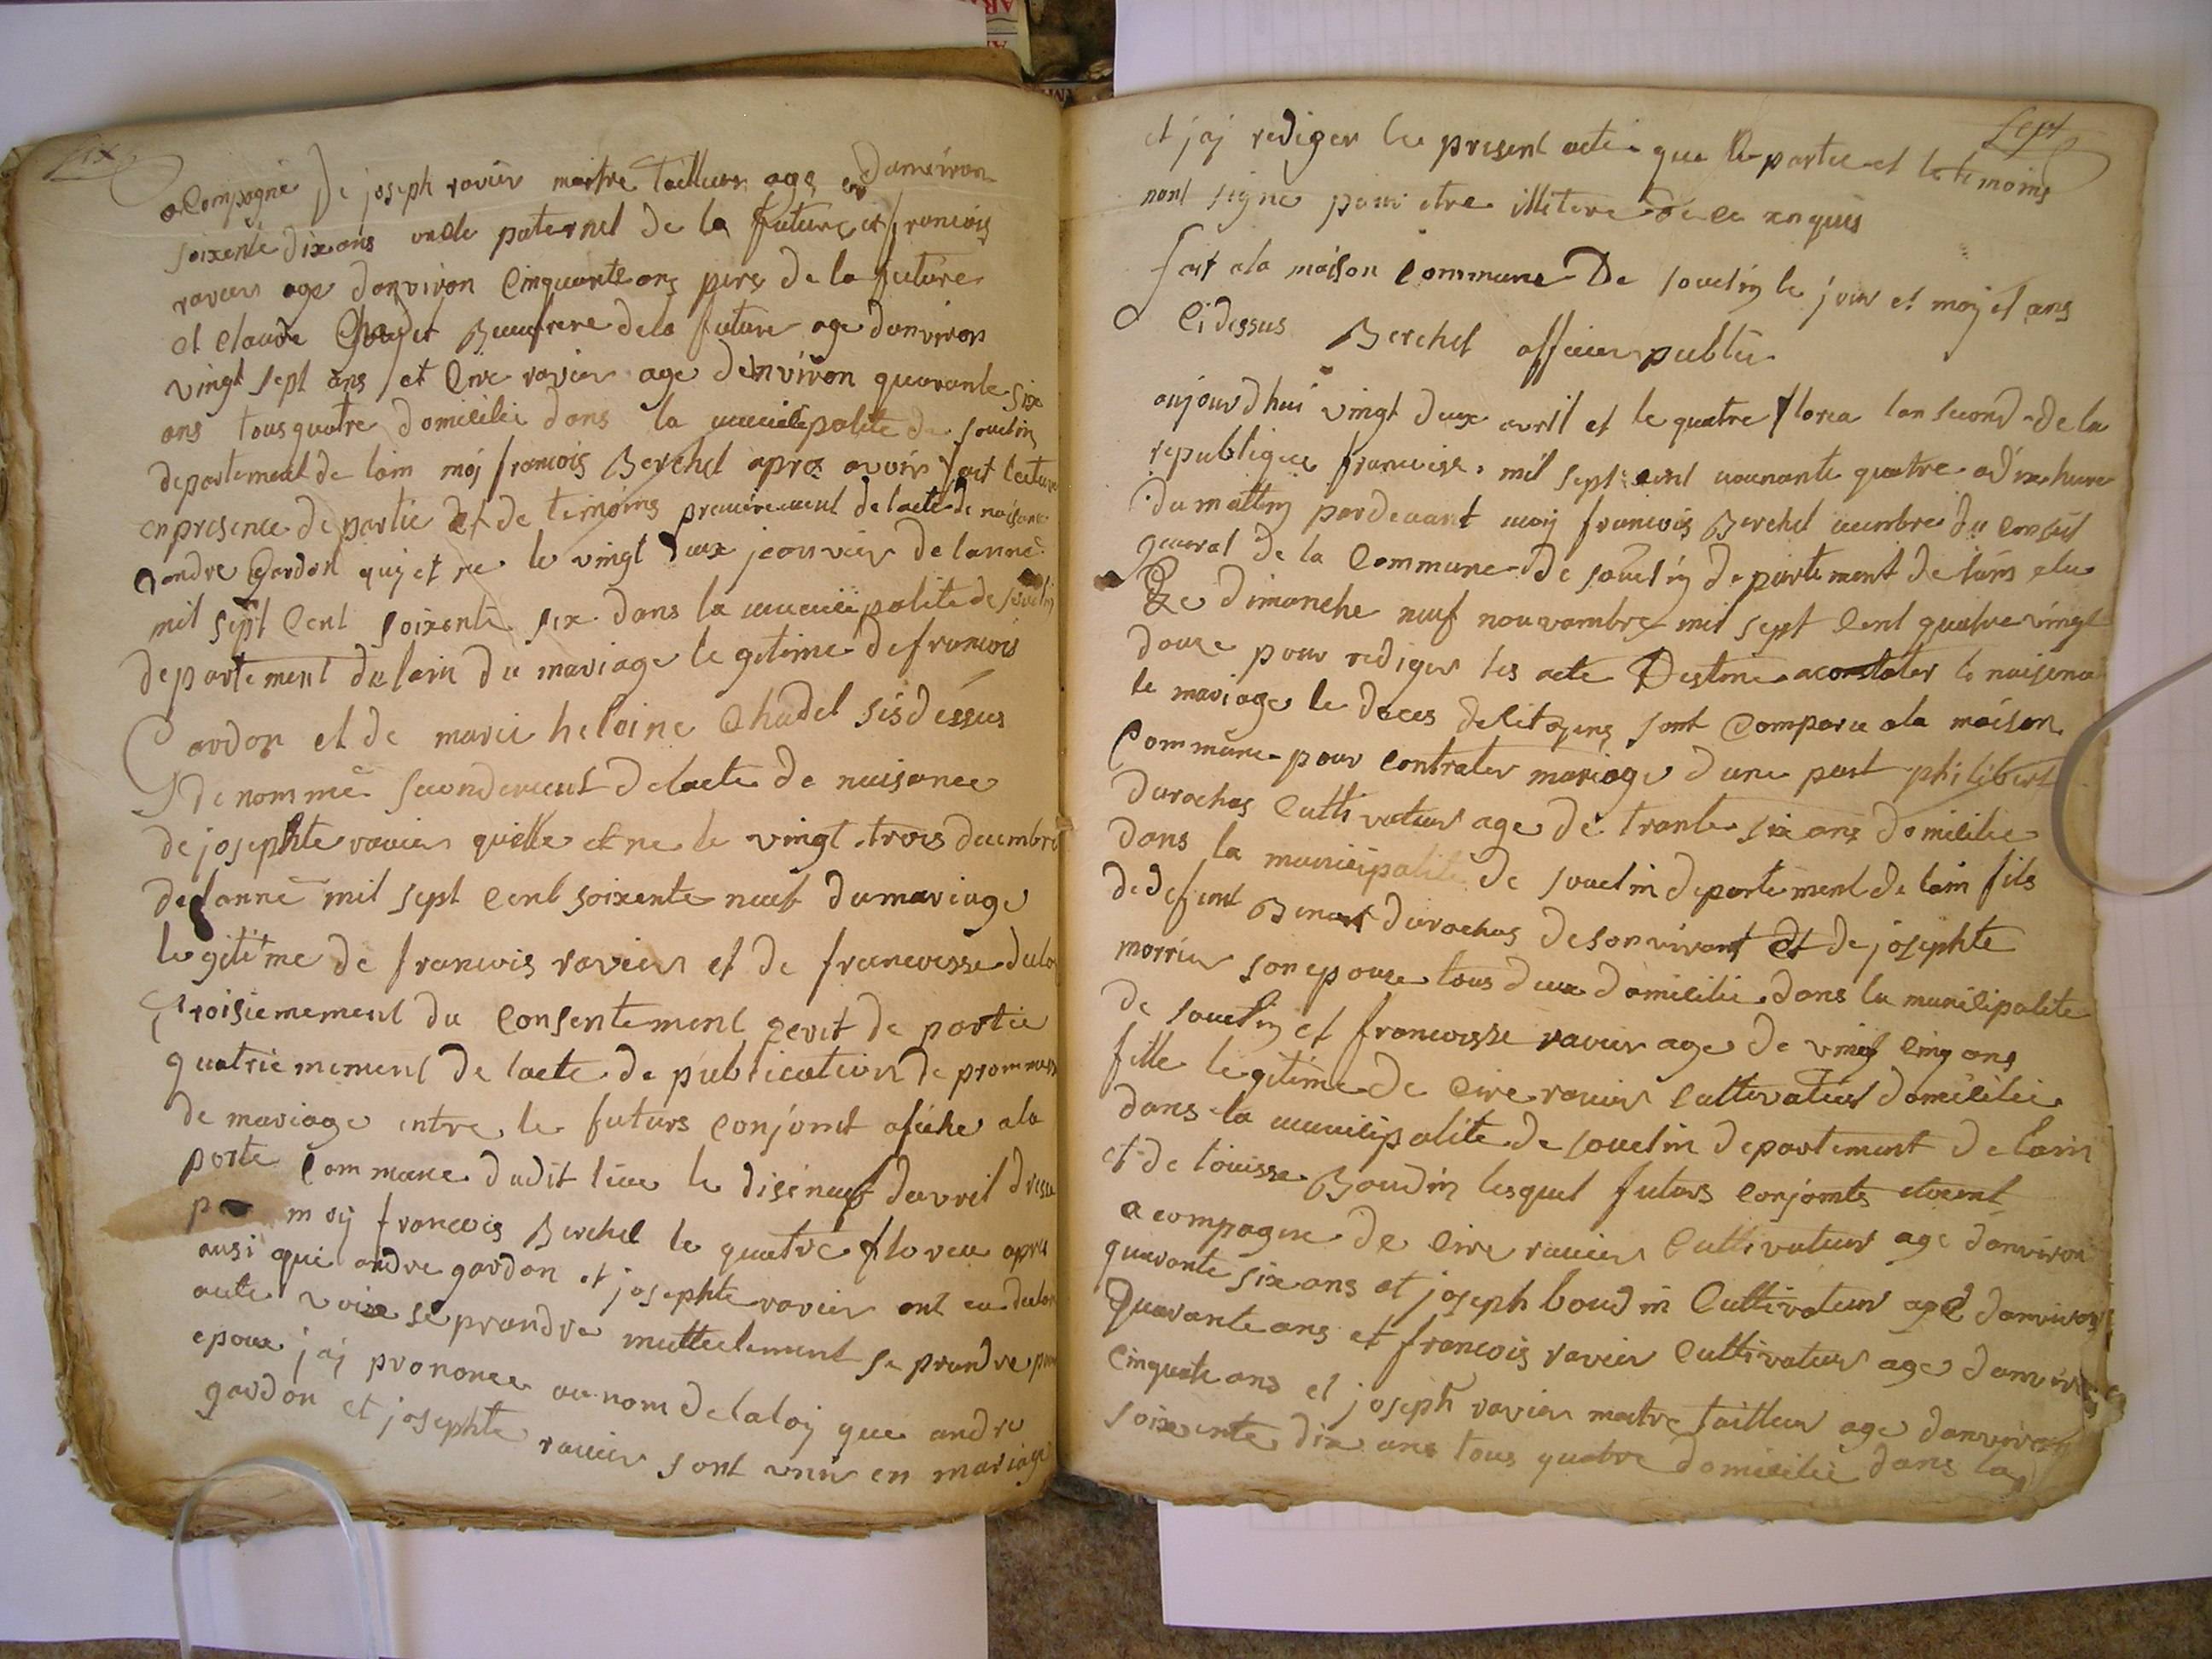 six
acompagné De joseph ravier maitre Tailleur age danviron
soixente dix ans oncle paternel de la future et francois
ravier age danviron cinquante ans pere de la future
et claude chadet Beaufrere de la future age danviron
vingt sept ans et cire ravier age denviron quarante six
ans tous quatre domicilie dans la municipalite de souclin
departement de lain moj francois Berchet apres avoir fait lecture
en presence de partie et de temoins premierement de lacte de naisance
dandre Gardon quij et ne le vingt deux jeanvier de lanne
mil sept cent soixente six dans la municipalite de souclin
departement de lain du mariage legetime de francois
Gardon et de marie helaine chadet sis dessus
denommé secondement de lacte de naisance
de josephte ravier quelle et ne le vingt trois decembre
de lanne mil sept cent soixente neuf du mariage
legitime de francois ravier et de francoisse
troisiemement du consentement de partie
quatriemement de lacte de publication de prommess
de mariage entre le futurs conjoint afiche a la
porte commune dudit lieu le diseneuf davril
moij francois Berchet le quatre florea apres
ausi que andre gardon et josephte ravier ont eu
aute voix se prandre muttuelement se prandre pour
epoux jaj prononce au nom de la loij que andre
gardon et josephte ravier sont unis en mariage
sept
et jaj rediger le present acte que le partie et le temoins
nont signe pour etre illitere de ce enquis
fait a la maison commune De souclin le jour et moij et ans
cidessus Berchet afficier public
aujourdhui vingt deux avril et le quatre florea lan second de la
republique francoise mil sept cent nounante quatre a dix hure
du mattin pardevant moij francois Berchet membre du conseil
general de la commune de souclin departement de lain elu
le dimanche neuf nouvambre mil sept cent quatre vingt
douze pour rediger les acte Destine a constater le naisence
le mariage le deces de citojens sont comparu a la maison
commune pour contrater mariage dune part philibert
durochas cultivateur age de trante six ans domicilie
dans la municipalite de souclin departement de lain fils
de defunt Benoit durochas de son vivant et de josephte
morrier son epouse tous deux domicilie dans la municipalite
de souclin et francoisse ravier age de vingt cinq ans
fille legitime de cire ravier cultivateur domicilie
dans la municipalite de souclin departement de lain
et de louisse Boudin lesquel futurs conjoints etoient
acompagne de cire ravier cultivateur age danviron
quarante six ans et joseph boudin cultivateur age danviron
quarante ans et francois ravier cultivateur age danviron
cinquate ans et joseph ravier maitre tailleur age danviron
soixente dix ans tous quatre domicilie dans la